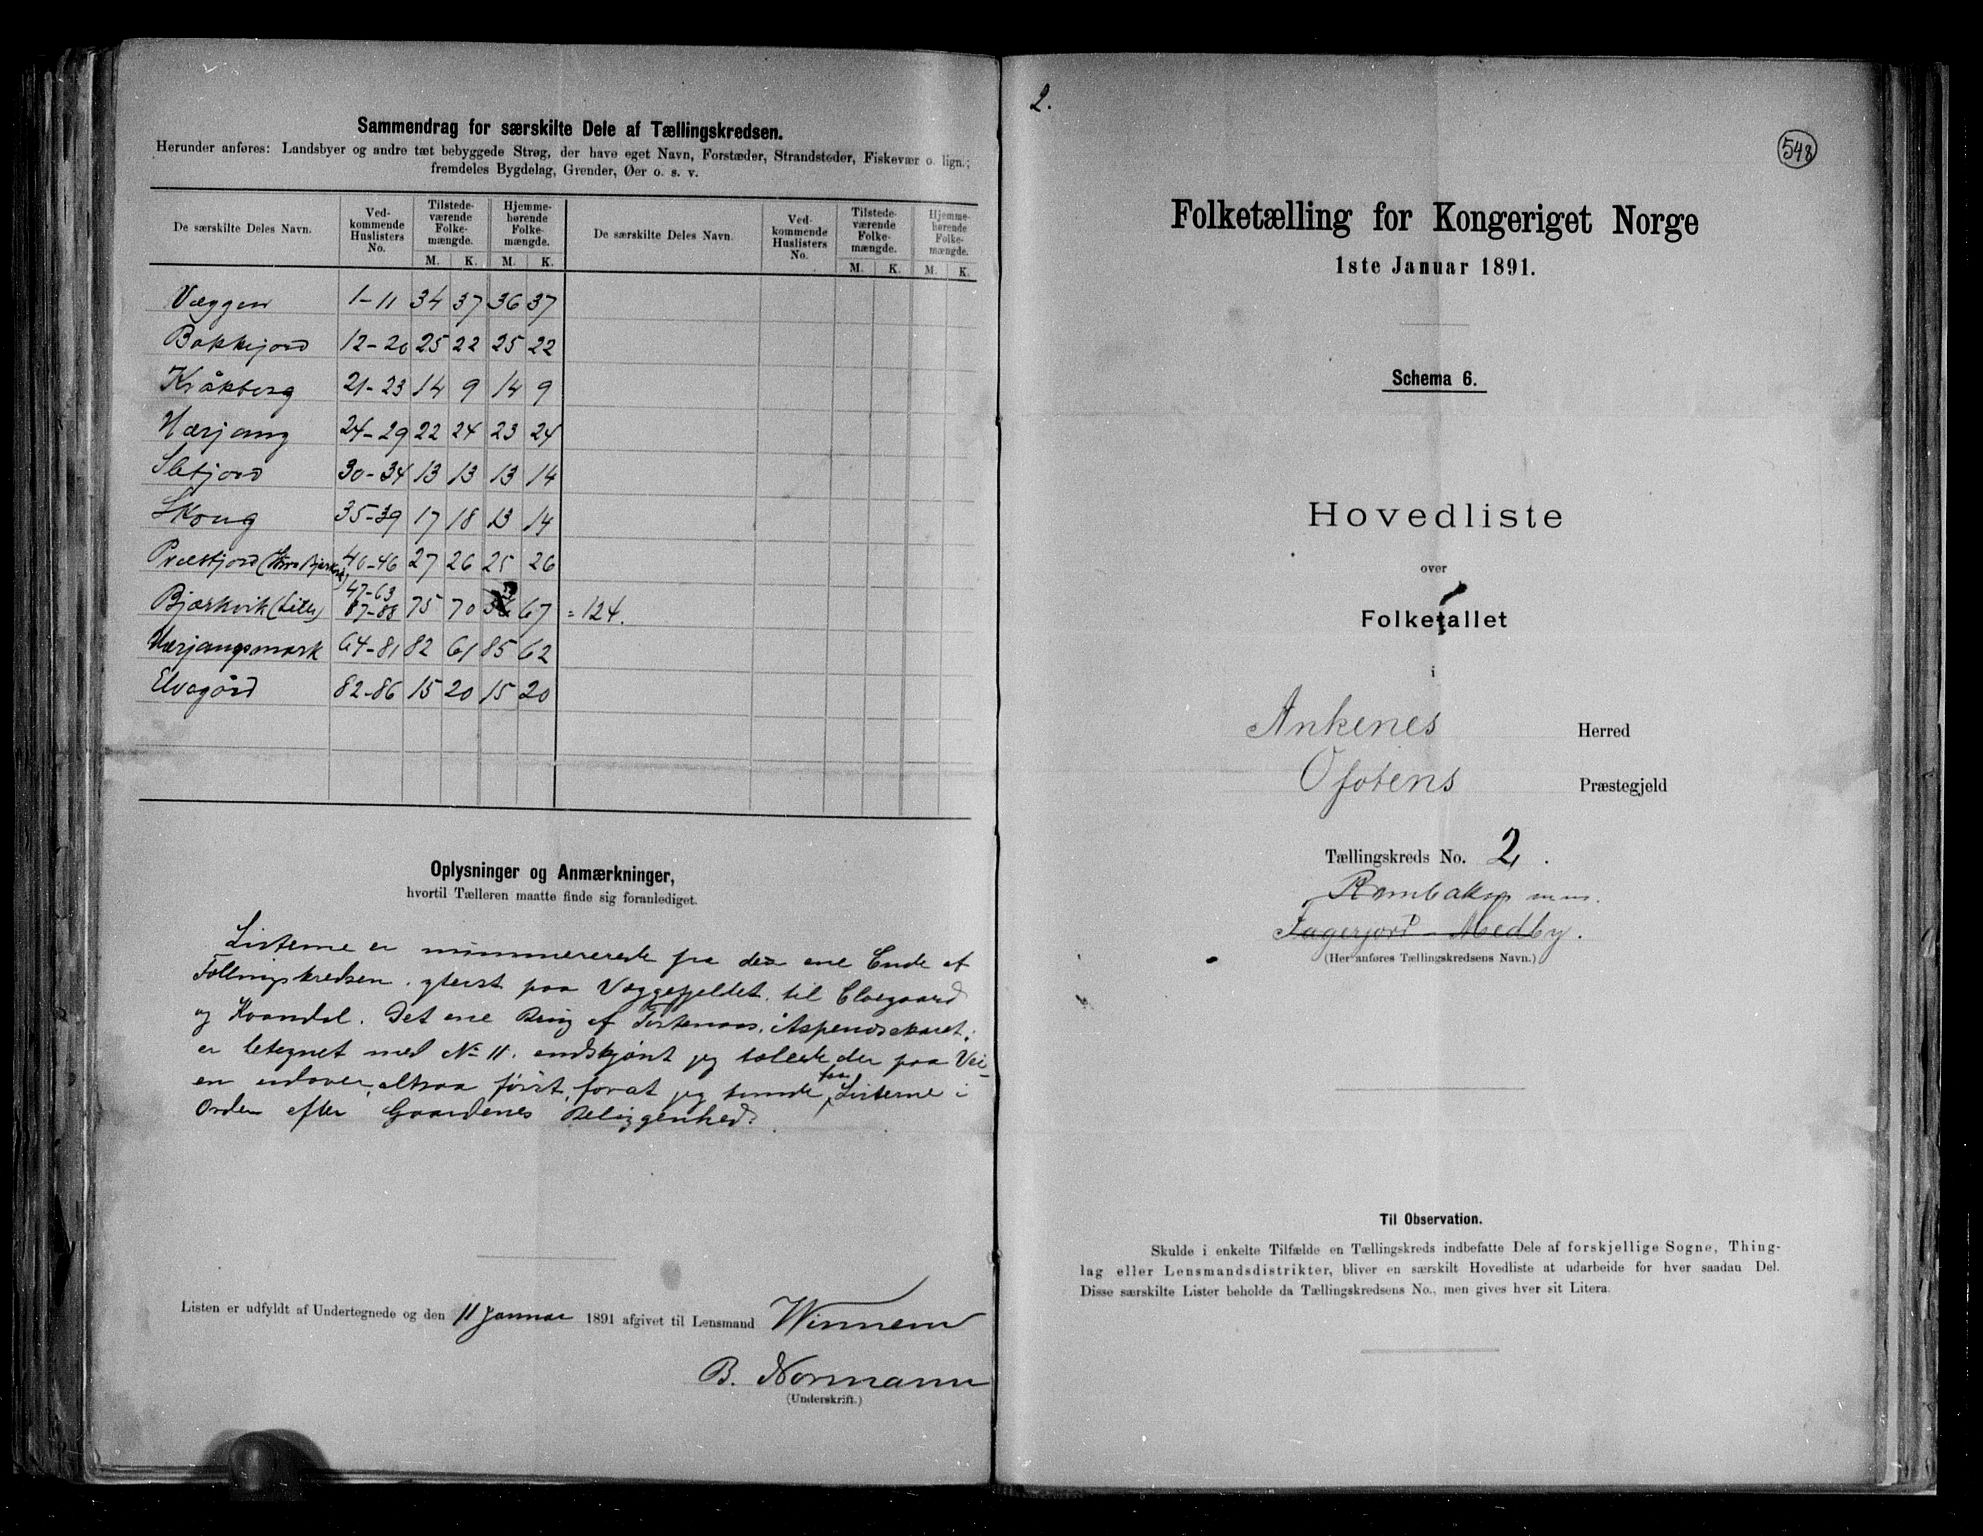 Sammendrag for særskilte Dele af Tællingskredsen.
Herunder anføres: Landsbyer og andre tæt bebyggede Strøg, der have eget Navn, Forstæder, Strandsteder, Fiskevær o. lign.;
fremdeles Bygdelag, Grender, Øer o. s. v.
De særskilte Deles Navn. Ved-kommende Huslisters No. Tilstede-værende Folke-mængde. Hjemme-hørende Folke-mængde. De særskilte Deles Navn. Ved-kommende Huslisters No. Tilstede-værende Folke-mængde. Hjemme-hørende Folke-mængde.
M. K. M. K. M. K. M. K.
Væggen 1-11 34 37 36 37
Bakkejord 12-20 25 22 25 22
Kråkberg 21-23 14 9 14 9
Hærjang 24-29 22 24 23 24
Sletjord 30-34 13 13 13 14
Skoug 35-39 17 18 13 14
Præstjord 40-46 27 26 25 26
47-63
Bjærkvik (Lille) 87-88 75 70 67 = 124.
Hærjangsmark 64-81 82 61 85 62
Elvegård 82-86 15 20 15 20
Oplysninger og Anmærkninger,
hvortil Tælleren maatte finde sig foranlediget.
Listerne er nummererede fra den ene Ende af
Tællingskredsen. yterst paa Væggefjeldet. til Elvegaard
og Kvandal. Det ene Brug af
er betegnet med No 11. endskjønt jeg talte der paa Vei-
en udover, altsaa først, forat jeg kunde faa Listerne i
Orden efter Gaardenes Beliggenhed.
Listen er udfyldt af Undertegnede og den 11 Januar 1891 afgivet til Lensmand Winnem
B. Normann
(Underskrift.)
2.
548
Folketælling for Kongeriget Norge
1ste Januar 1891.
Schema 6.
Hovedliste
over
Folketallet
i
Ankenes Herred
Ofotens Præstegjeld
Tællingskreds No. 2.
Rombaken m.m.
Fagerjord - Medby.
(Her anføres Tællingskredsens Navn.)
Til Observation.
Skulde i enkelte Tilfælde en Tællingskreds indbefatte Dele af forskjellige Sogne, Thing-
lag eller Lensmandsdistrikter, bliver en særskilt Hovedliste at udarbeide for hver saadan Del.
Disse særskilte Lister beholde da Tællingskredsens No., men gives hver sit Litera.